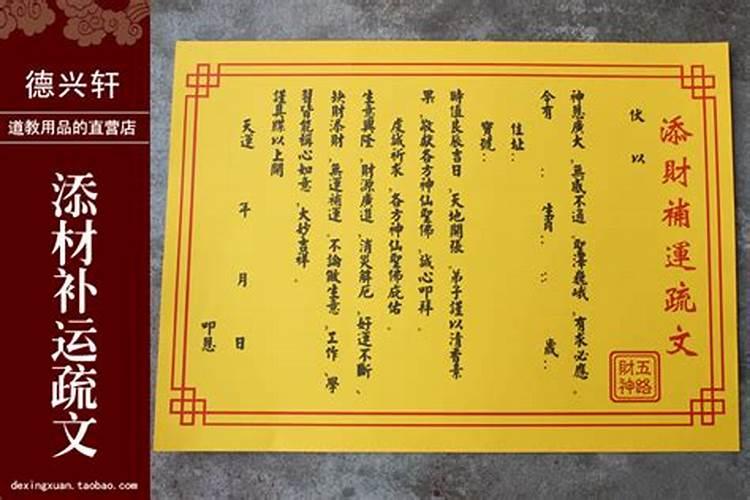 德兴轩
道教用品的直营店
添材补运疏文
dexingxuan.taobao.com
添財補運疏文
五路
財神
伏以
神恩廣大、無感不通、聖澤巍峨、有求必應。
今有：生肖：：歲：
住址：
寶號：
時值良辰吉日、天地開張、弟子謹以清香素
果、敬獻各方神仙聖佛、誠心叩拜、
虔誠祈求、各方神仙聖佛庇佑、
生意興隆、財源廣進、消災解厄、好運不斷、
缺財添財、無運補運、不論做生意、工作、學
習皆能稱心如意、大妙吉祥。
謹具牒以上聞
天運年月日
叩恩